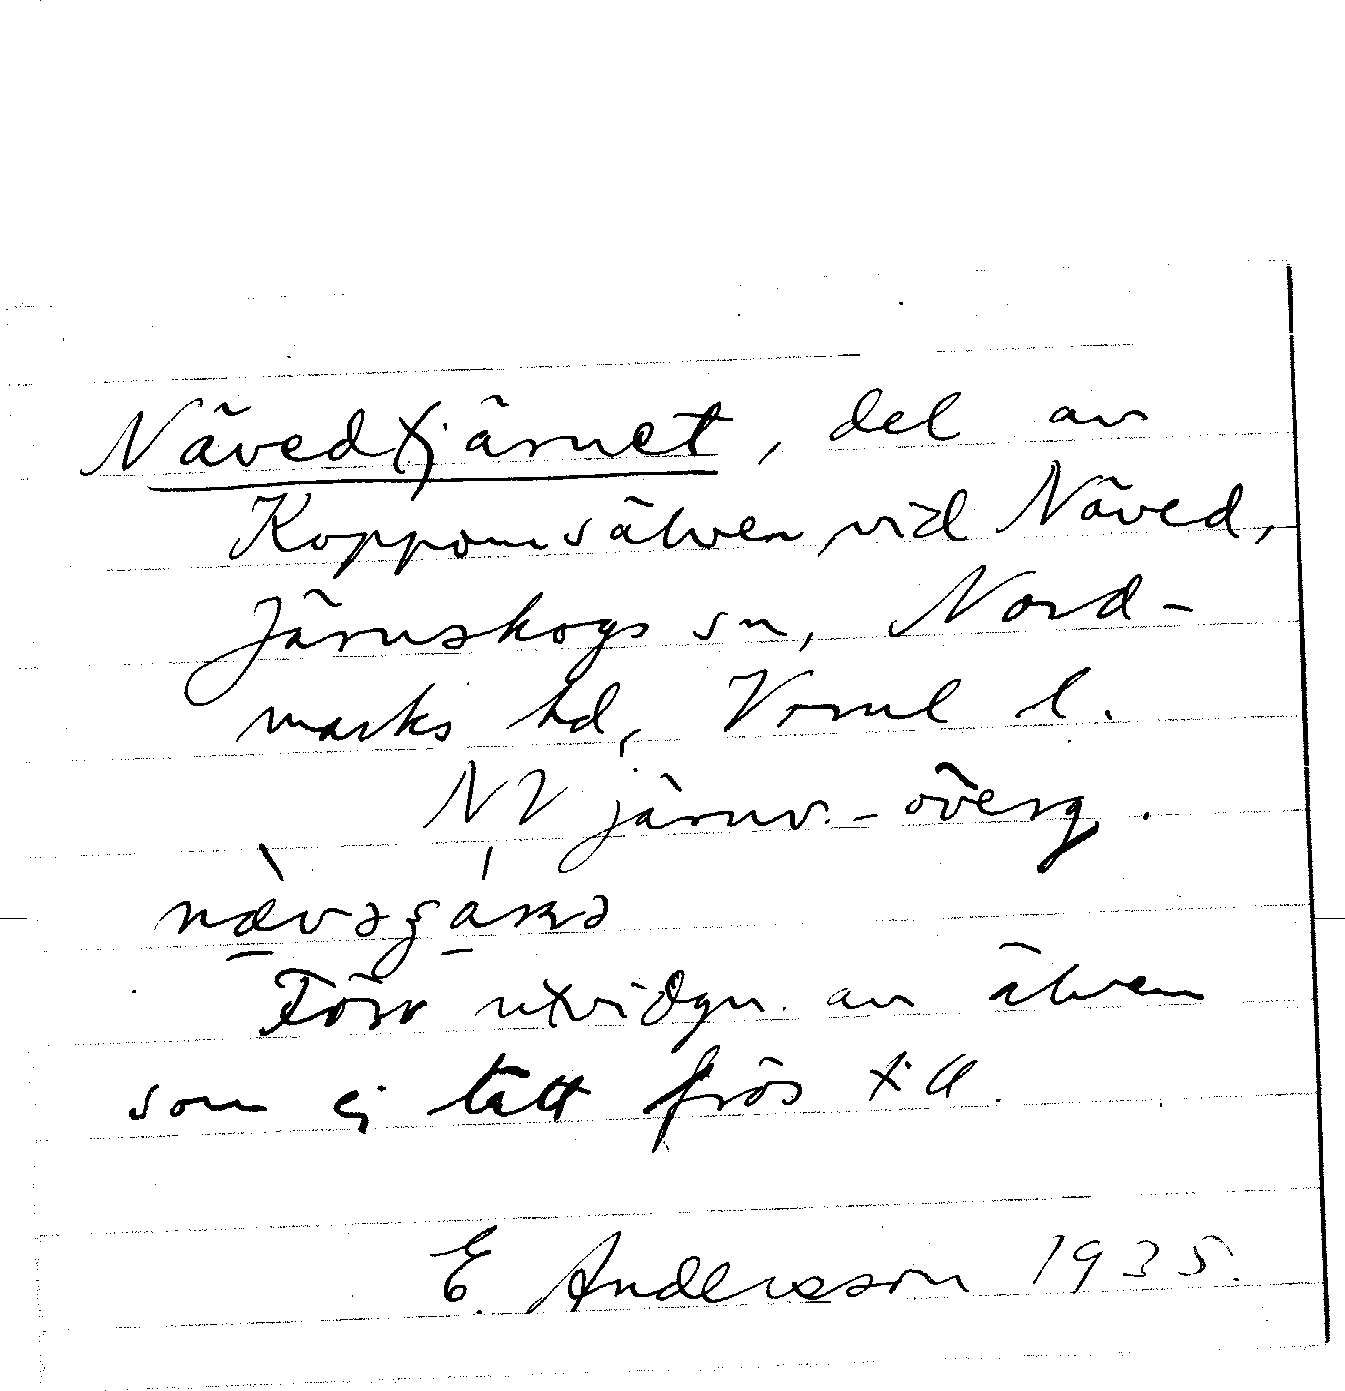 Nävedtjärnet, del av
Koppomsälven vid Näved,
Järnskogs sn, Nord-
marks hd, Vrml l.
NV järnv.-överg.
nævəʂánə
Förr utvidgn. av älven
som ej tätt frös till.
E. Andersson 1935.